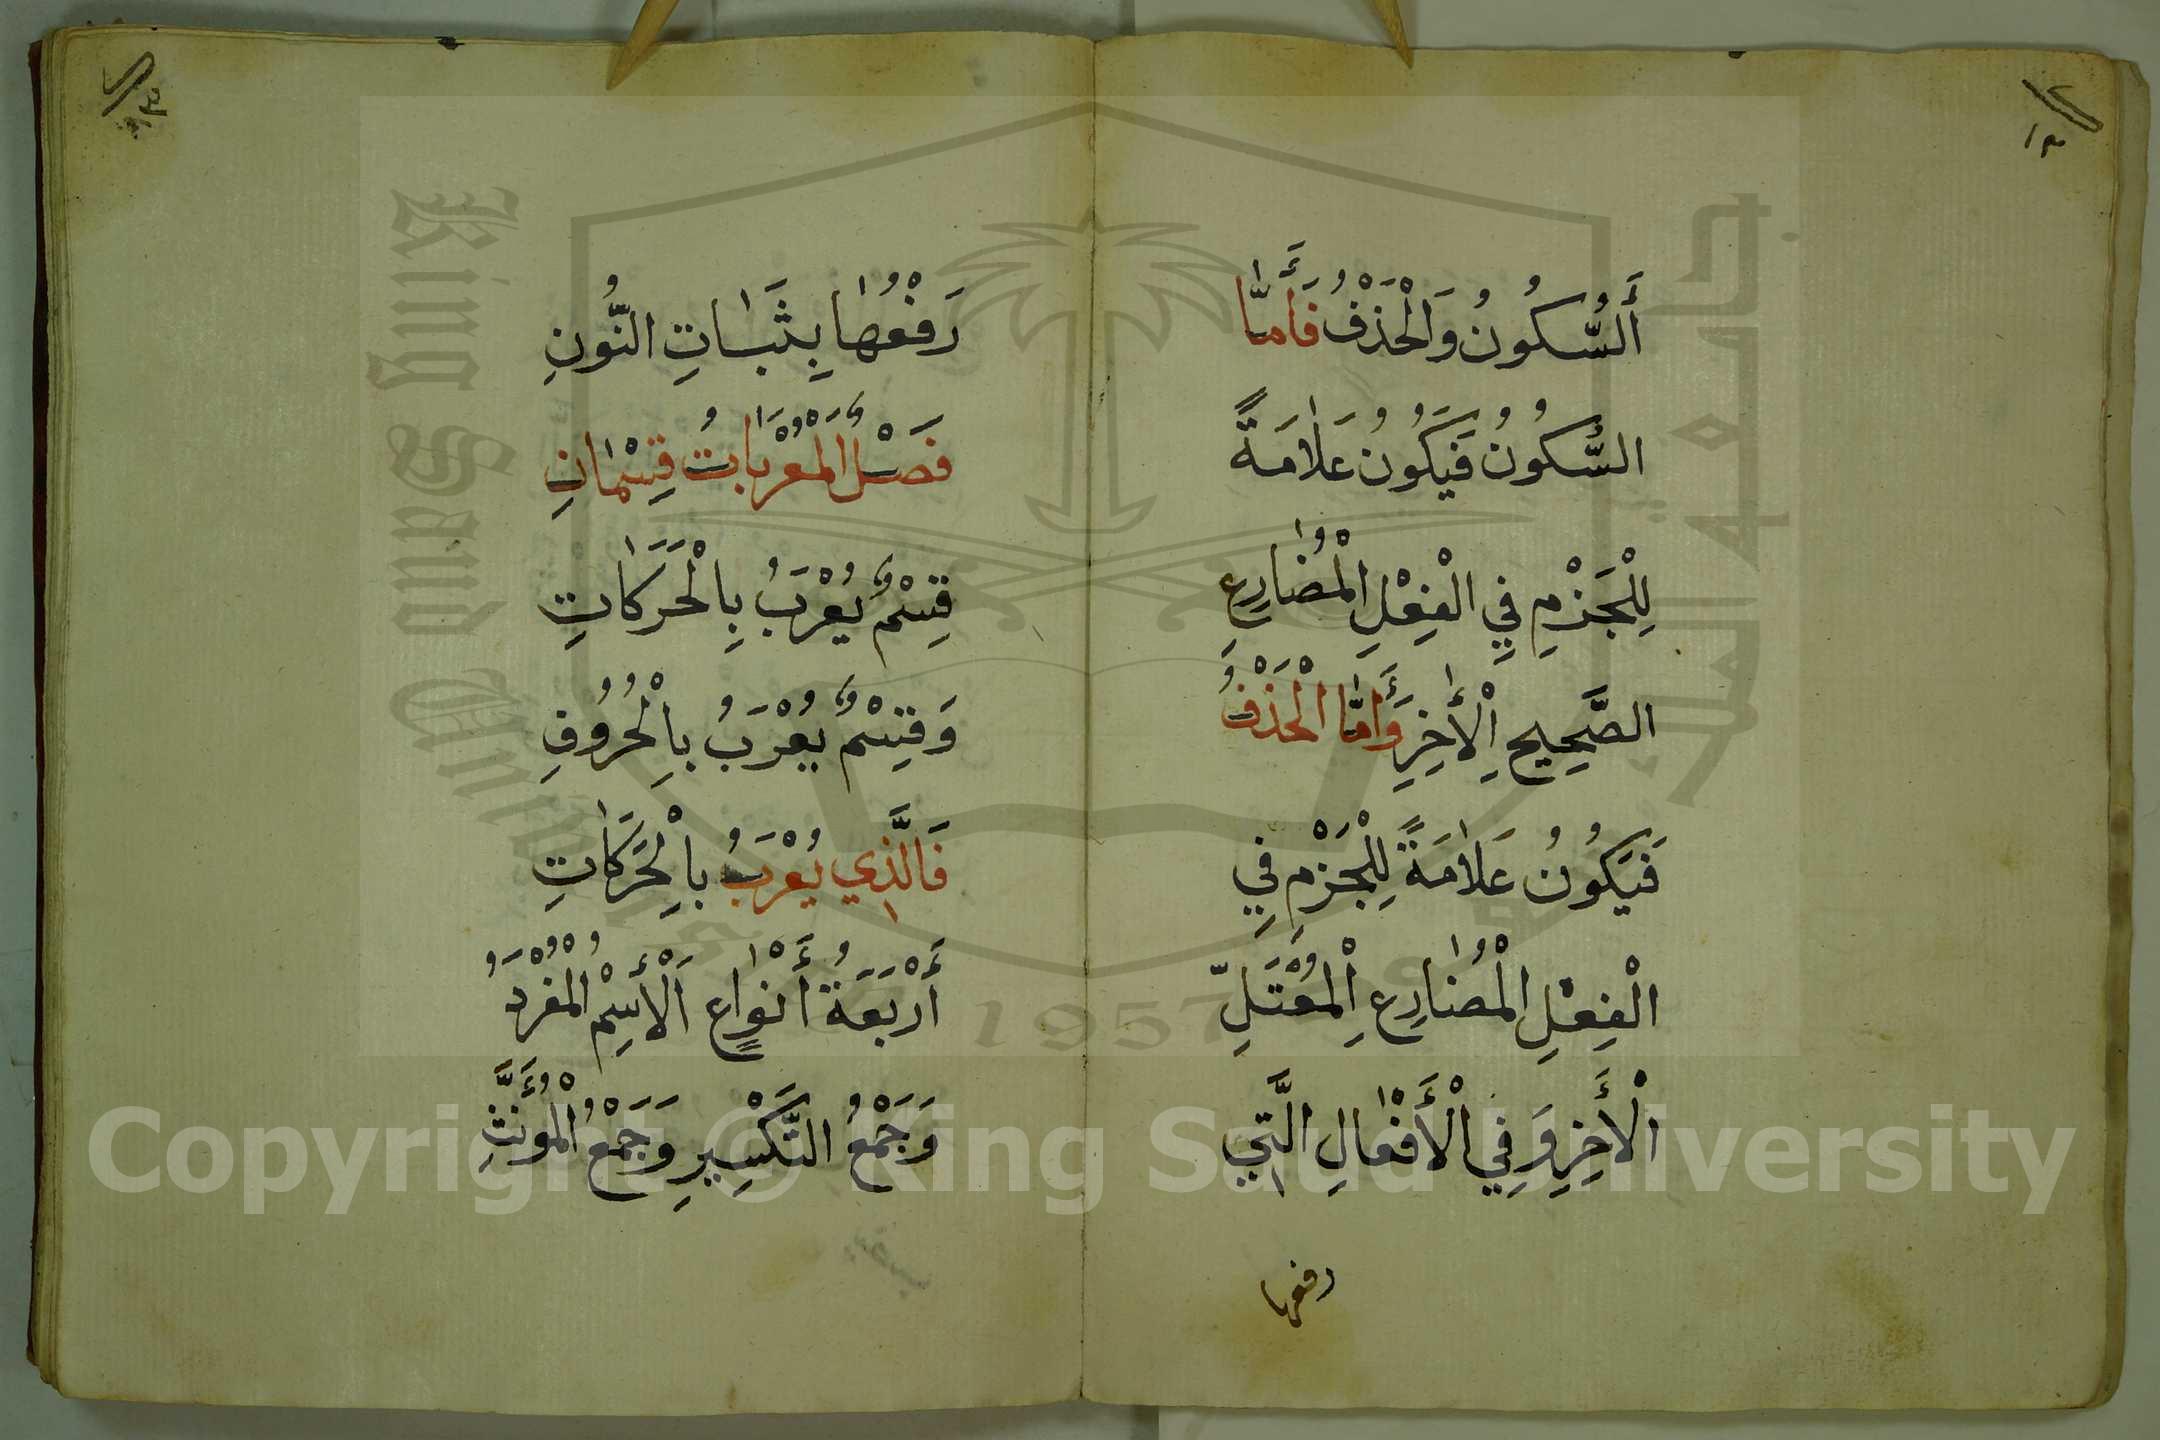 أَلسُّكُونُ وَالْحَذْفُ فَأَمَّا
السُّكُونُ فَيَكُونُ عَلَامَةً
لِلْجَزْمِ فِي الْفِعْلِ الْمُضَارِعِ
الصَّحِيحِ الْأَخِرِ وَأَمَّا الْحَذْفُ
فَيَكُونُ عَلَامَةً لِلْجَزْمِ فِي
الْفِعْلِ الْمُضَارِعِ الْمُعْتَلِّ
الْأَخِرِ وَفِي الْأَفْعَالِ الَّتِي
رفعها
رَفْعُهَا بِثَبَاتِ النُّونِ
فَصْلٌ الْمُعْرَبَاتُ قِسْمَانِ
قِسْمٌ يُعْرَبُ بِالْحَرَكَاتِ
وَقِسْمٌ يُعْرَبُ بِالْحُرُوفِ
فَالَّذِي يُعْرَبُ بِالْحَرَكَاتِ
أَرْبَعَةُ أَنْوَاعٍ اَلْأِسْمُ الْمُفْرَدُ
وَجَمْعُ التَّكْسِيرِ وَجَمْعُ الْمُؤَنَّثِ
King Saud Univers
جامعة الملك
1957
Copyright © King Saud University